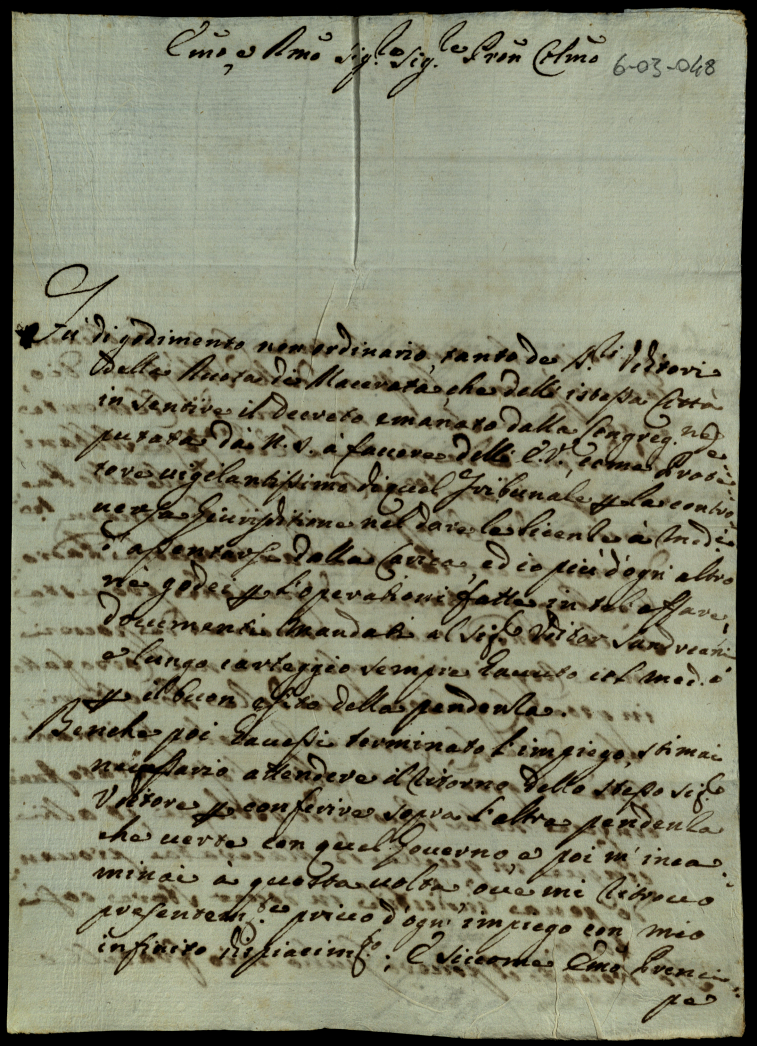 Emo, e Rmo Sig.re Sig.re Pron Colmo 6-03-048
Fù di godimento non ordinario, tanto de SS.ri Uditori
della Ruota di Macerata, che dell'istessa Città
in sentire il decreto emanato dalla Congreg.ne de
putata da N. S. à favore dell' E.V., come Protet
tore vigilantissimo di quel Tribunale p la contro
versa Giurisditione nel dare le licenze à Medi
d'assentarse dalla Carica, ed io più d'ogn'altro
nè godei p l'operationi fatte in tal affare,
documenti mandati al Sig.re Uditor Sandreani
e lungo carteggio sempre havuto col med.o
p il buon esito della pendenza.
Benche poi havessi terminato l'impiego, stimai
necessario attendere il ritorno dello stesso Sig.re
Uditore p conferire sopra l'altra pendenza
che verte con quel Governo, e poi m'inca
minai à questa volta ove mi ritrovo
presentem.te privo d'ogn'impiego con mio
infinito dispiacim.to; E siccome Emo Prenci
pe